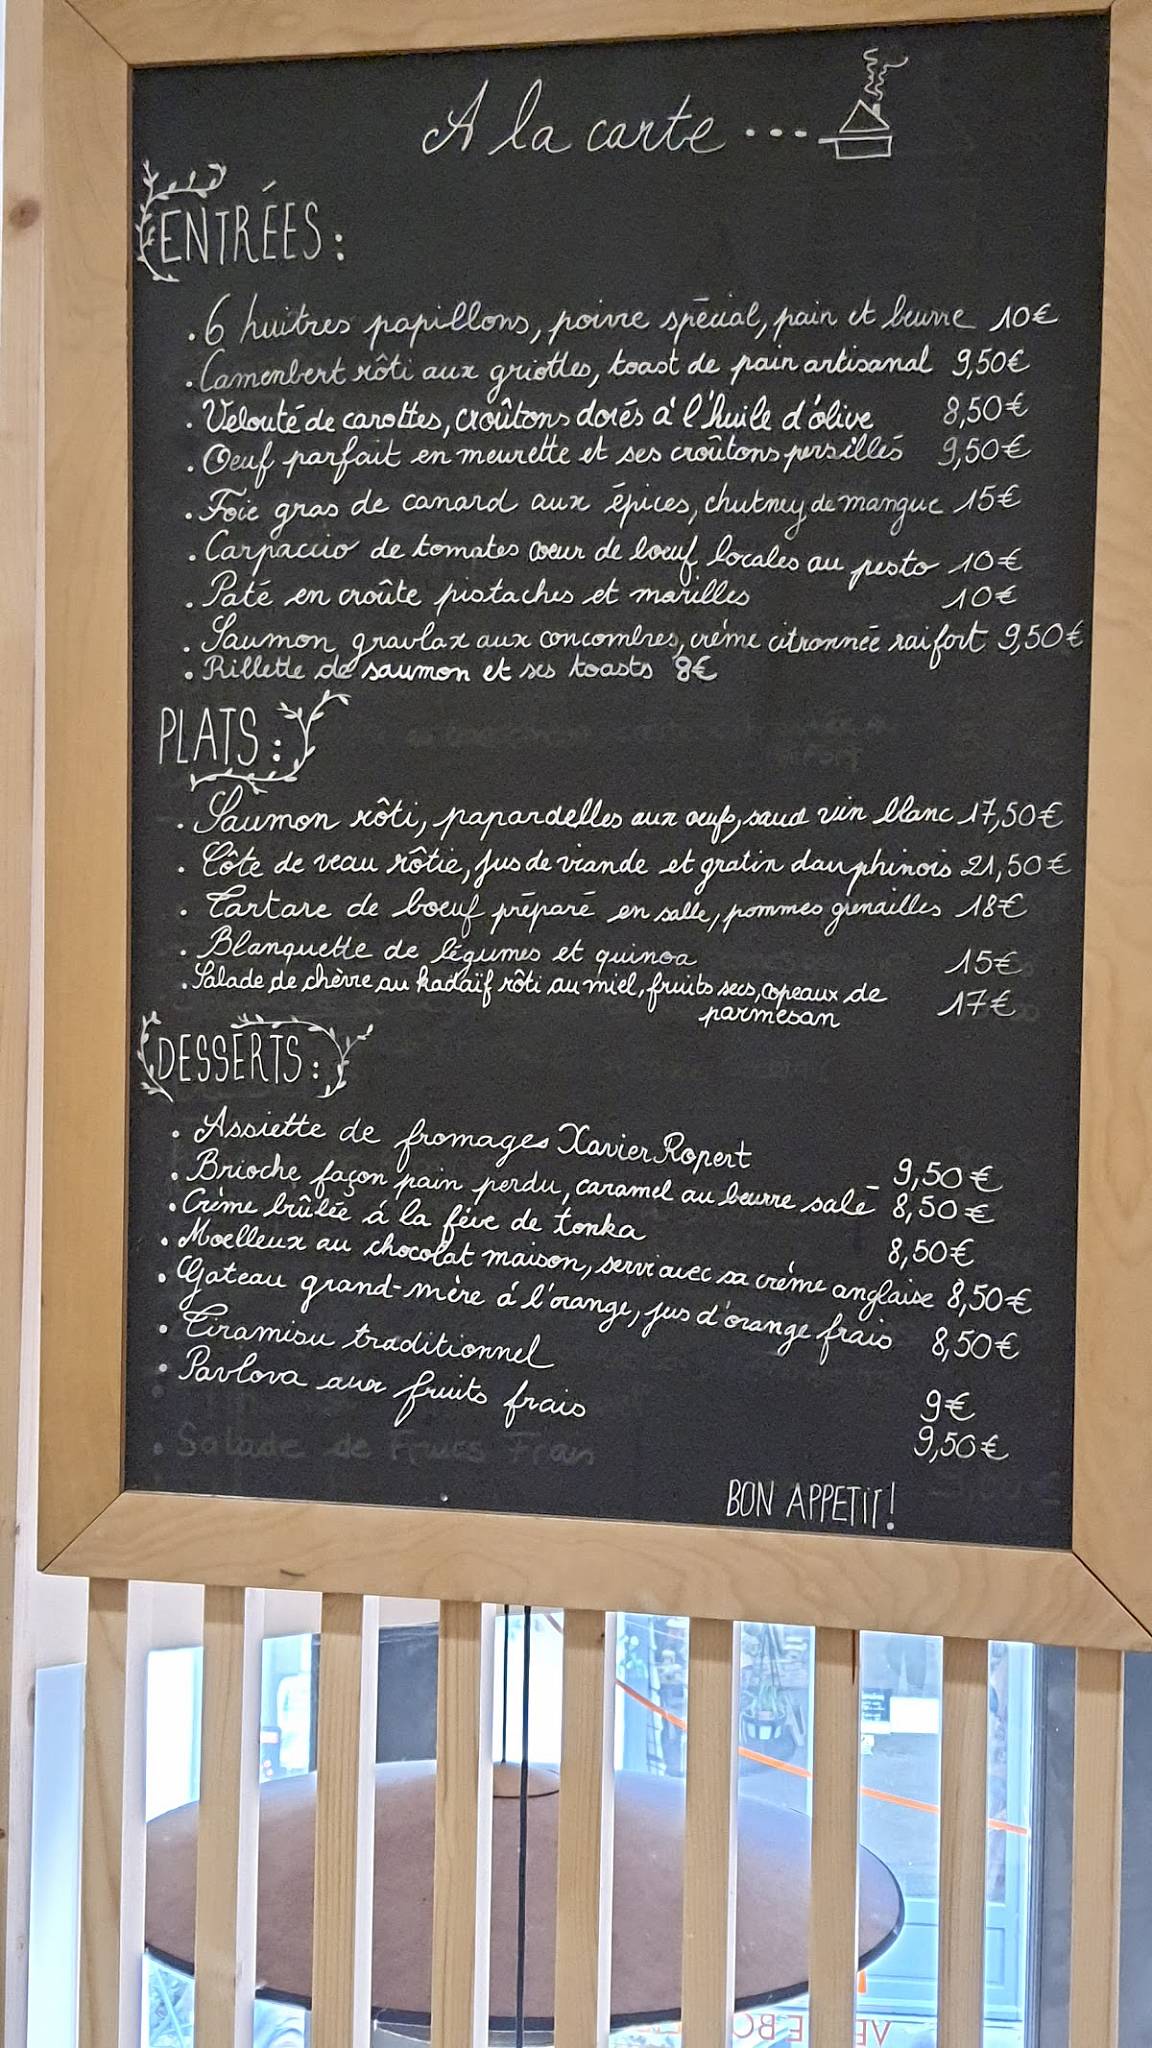 A la carte ...
ENTRÉES :
. 6 huitres papillons, poivre spécial, pain et beurre 10€
. Camenbert rôti aux griottes, toast de pain artisanal 9,50€
. Velouté de carottes, croûtons dorés à l'huile d'olive 8,50€
. Oeuf parfait en meurette et ses croûtons persillés 9,50€
. Foie gras de canard aux épices, chutney de mangue 15€
. Carpaccio de tomates coeur de boeuf locales au pesto 10€
. Paté en croûte pistaches et morilles 10€
. Saumon gravlax aux concombres, crème citronnée raifort 9,50€
. Rillette de saumon et ses toasts 8€
PLATS :
. Saumon rôti, papardelles aux oeufs, vin blanc 17,50€
. Côte de veau rôtie, jus de viande et gratin dauphinois 21,50€
. Tartare de boeuf préparé en salle, pommes grenailles 18€
. Blanquette de légumes et quinoa 15€
. Salade de chèvre au kadaïf rôti au miel, fruits secs, copeaux de
parmesan 17€
DESSERTS :
. Assiette de fromages Xavier Ropert 9,50€
. Brioche façon pain perdu, caramel au beurre salé 8,50€
. Crème brûlée à la fève de tonka 8,50€
. Moelleux au chocolat maison, servi avec sa crème anglaise 8,50€
. Gateau grand-mère à l'orange, jus d'orange frais 8,50€
. Tiramisu traditionnel 9€
. Pavlova aux fruits frais 9,50€
. Salade de Fruits Frais
BON APPETIT!